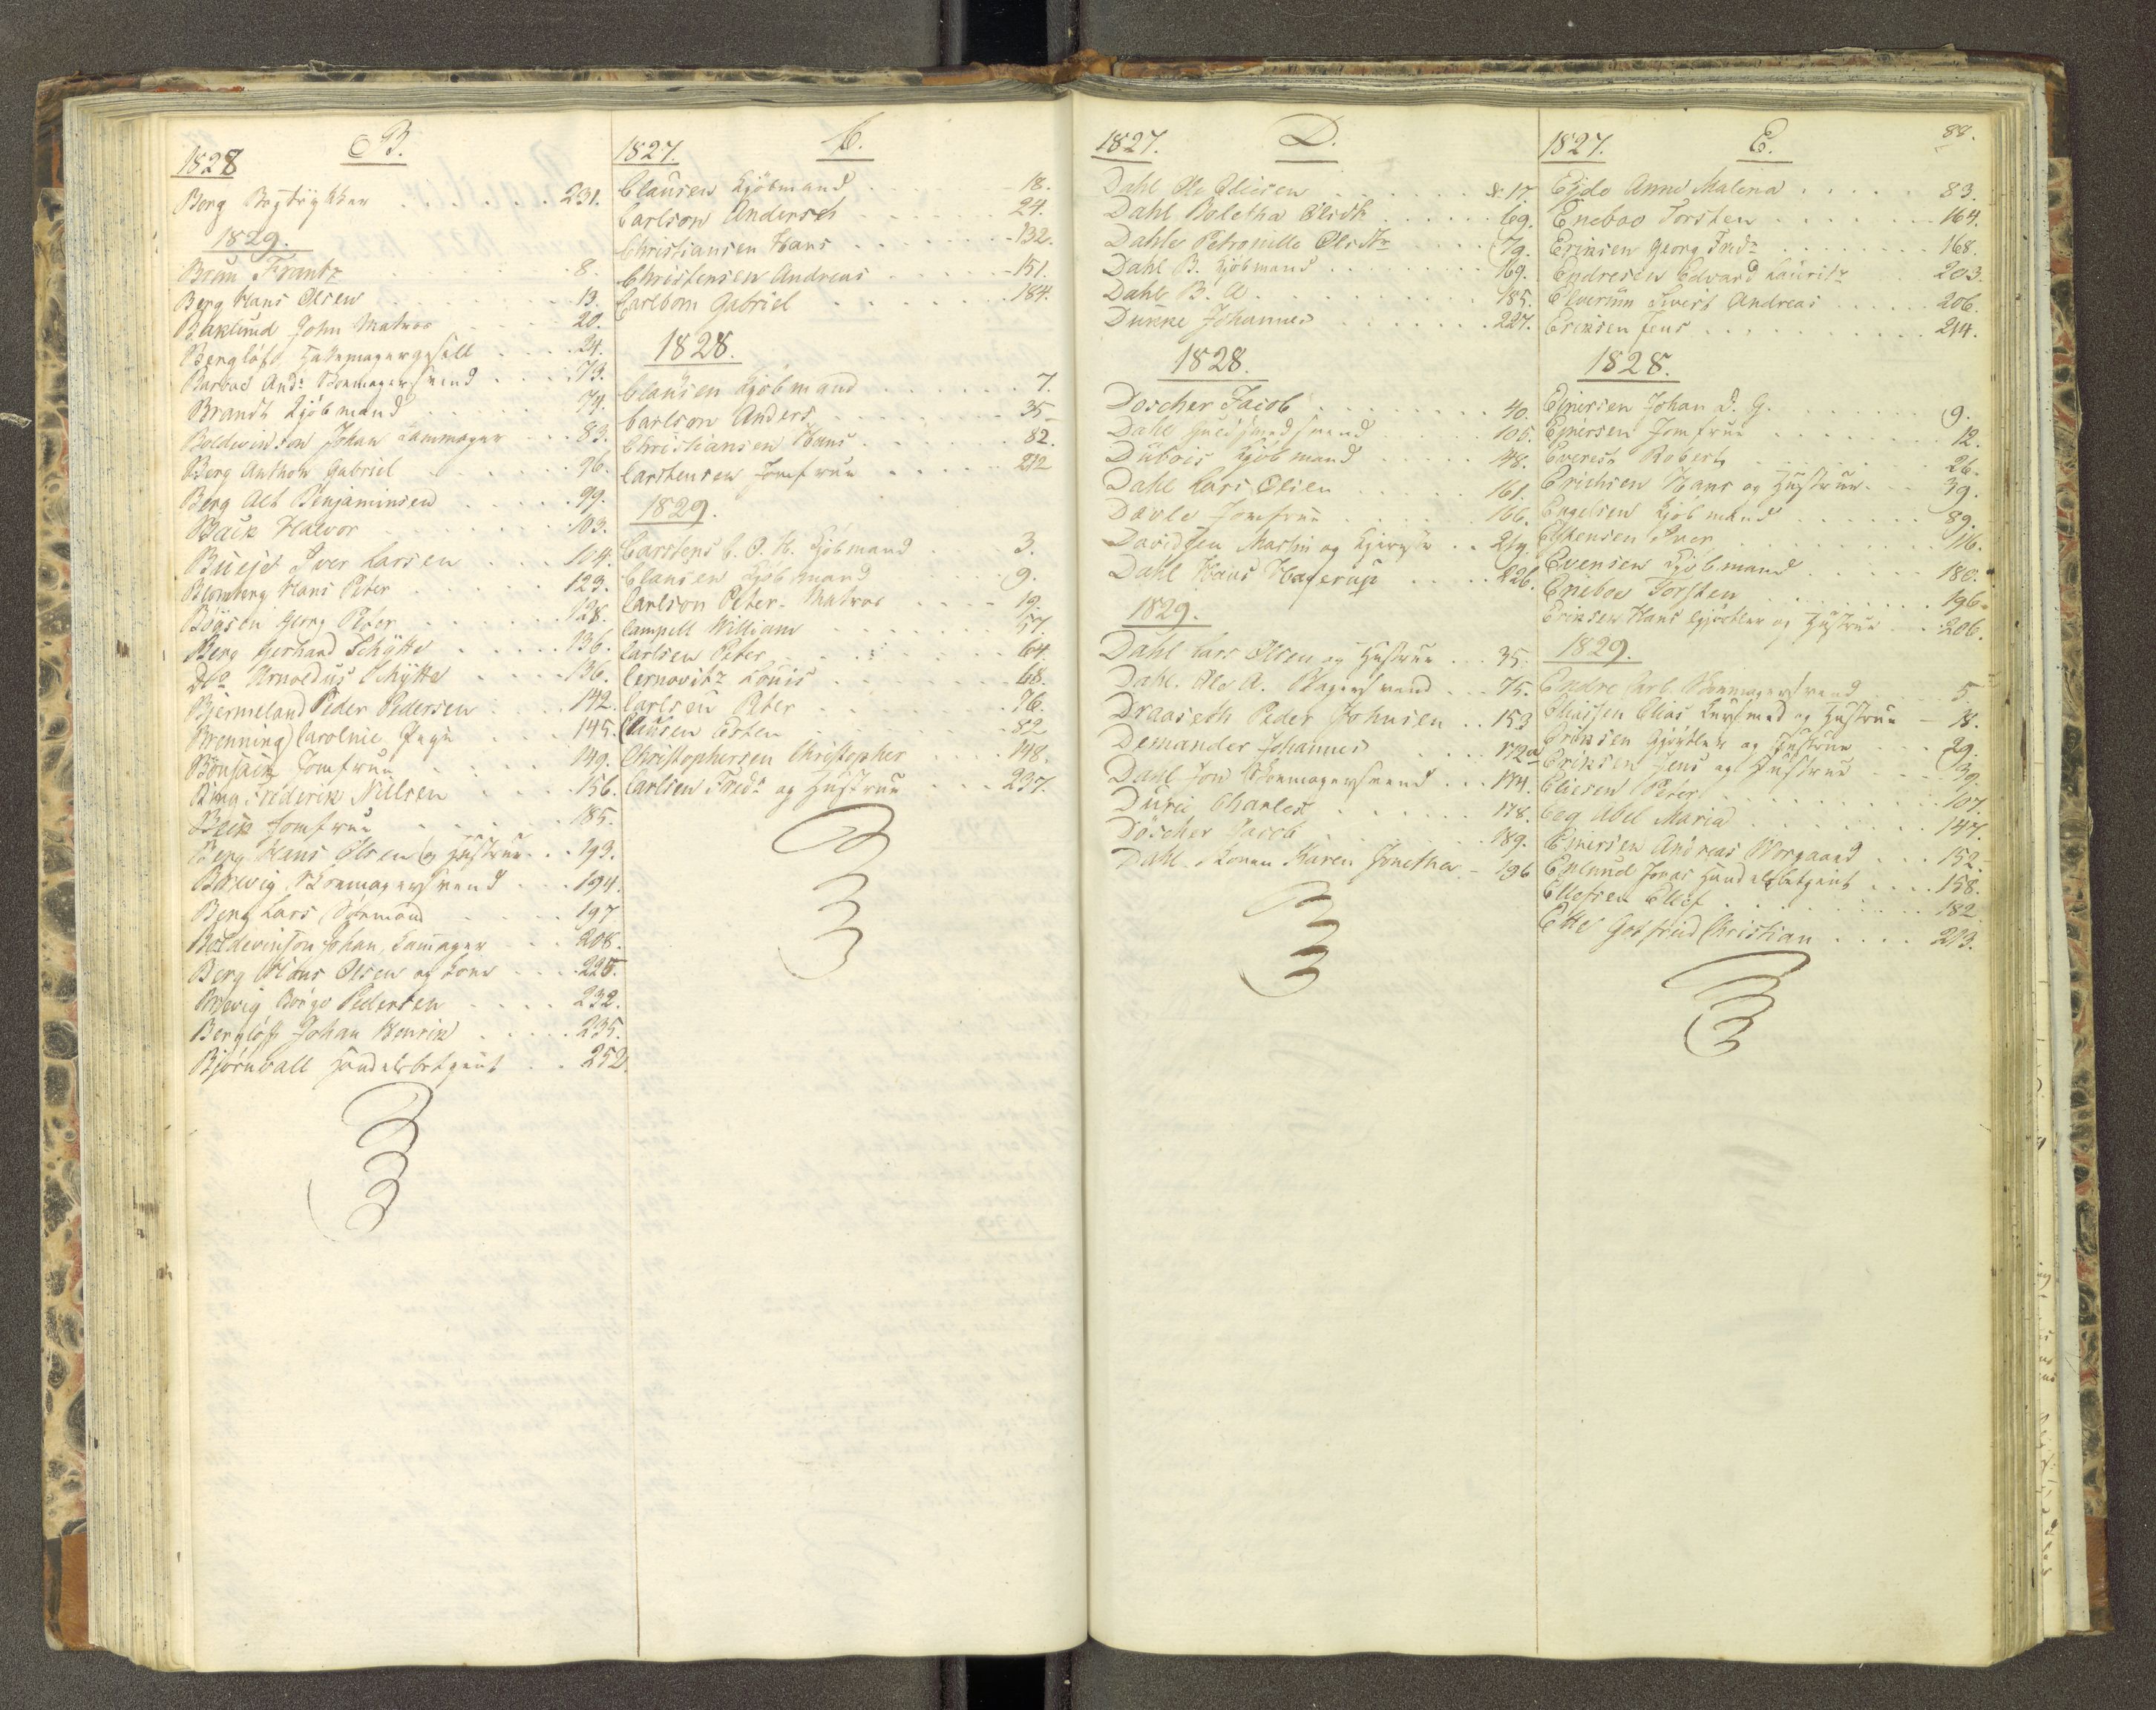 B.
1828
Berg Bogtrykker 231.
1829.
Braun Frantz 8.
Berg Hans Olsen 13.
Baklund John Matros 20.
Berglöf Hattemagergesell 24.
Barboe Andr Skomagersvend 73.
Brandt Kjöbmand 74.
Boldevinson Johan Kammager 83.
Berg Anthon Gabriel 96.
Berg Alt Benjaminsen 99.
Back Halvor 103.
Bueje Iver Larsen 104.
Blomberg Hans Peter 123.
Böysen Georg Peter 128.
Berg Gerhard Schytte 136.
Do Arnoldus Schytte 136.
Bjermeland Peder Pedersen 142.
Brenning Caroline Pige 145.
Jomfrue 149.
Berg Frederik Nielsen 156.
Beck Jomfrue 185.
Berg Hans Olsen og Hustrue 193.
Brevig Skomagersvend 194.
Berg Lars Sömand 197
Boldevinson Johan, Kamager 208.
Berg Hans Olsen og Kone 225.
Brevig Börge Pedersen 232.
Berglöf Johan Henrik 235.
Björnvall Handelsbetjent 252.
1827. C.
Clausen Kjöbmand 18.
Carlson Andersch 24.
Christiansen Hans 132.
Christensen Andreas 151.
Carlbom Gabriel 184.
1828.
Clausen Kjöbmand 7.
Carlson Anders 35
Christiansen Hans 82.
Carstensen Jomfrue 212
1829.
Carstens C. J. H. Kjöbmand 3.
Clausen Kjöbmand 9.
Carlson Peter. Matros 19.
Campell William 57.
Carlsen Peter 64.
Cernovitz Louis 68.
Carlsen Peter 76.
Clausen Esten 82
Christophersen Christopher 148.
Carlsen Fredr og Hustrue 237.
1827. D.
Dahl Ole Oliesen & 17.
Dahl Boletha Olsdtr 69.
Dahle Petronille Olsdtr 79.
Dahl B. Kjöbmand 169.
Dahl B. A. 185.
Dunke Johannes 227.
1828.
Doscher Jacob 40.
Dahl Guldsmedsvend 105.
Dubois Kjöbmand 148.
Dahl Lars Olsen 161.
Davle Jomfrue 166.
Davidsen Martin og 219.
Dahl Hans Hagerup 226.
1829.
Dahl Lars Olsen og Hustrue 35.
Dahl. Ole A. Bagersvend 75.
Draaseth Peder Johnsen 153
Demander Johannes 172a
Dahl Jon Skomagersvend 174.
Durie Charles 178.
Döscher Jacob 189.
Dahl Konen Karen Jonetha 196
88.
1827. E.
Eide Anne Malena 83.
Eneboe Torsten 164.
Eriksen Georg Fredr 168.
Endresen Edvard Lauritz 203.
Elverum Sivert Andreas 206.
Eriksen Jens 214.
1828.
Einersen Johan D. G. 9.
Einersen Jomfrue 12.
Everest Robert 26.
Erichsen Hans og Hustrue 39.
Engelsen Kjöbmand 89.
Iver 116.
Evensen Kjöbmand 180.
Eneboe Torsten 196.
Eriksen Hans Gjörtler og Hustrue 206.
1829.
Endre Carl Skomagersvend 5.
Eliassen Elias og Hustrue 18.
Eriksen Gjörtler og Hustrue 29.
Eriksen Jens og Hustrue 39.
Eliesen Peter 107.
Eeg Abel Maria 147.
Einersen Andreas Worgaard 152
Enlund Jonas Handelsbetjent 158.
Ellefsen Ellef 182
Ette Gotfried Christian 213.